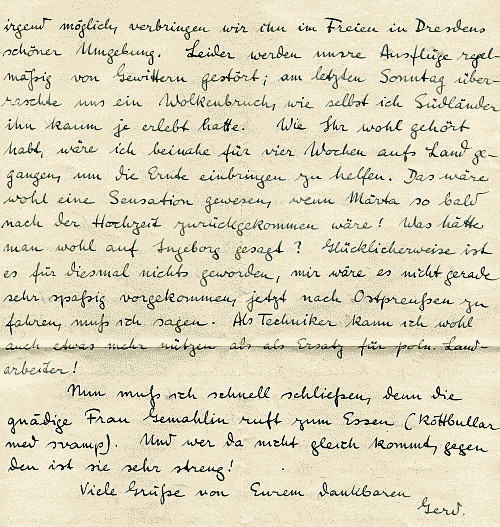 irgend möglich, verbringen wir ihn im Freien in Dresdens
schöner Umgebung. Leider werden unsre Ausflüge regel-
mäßig von Gewittern gestört; am letzten Sonntag über-
raschte uns ein Wolkenbruch, wie selbst ich Südländer
ihn kaum je erlebt hatte. Wie Ihr wohl gehört
habt, wäre ich beinahe für vier Wochen aufs Land ge-
gangen, um die Ernte einbringen zu helfen. Das wäre
wohl eine Sensation gewesen, wenn Märta so bald
nach der Hochzeit zurückgekommen wäre! Was hätte
man wohl auf Ingeborg gesagt? Glücklicherweise ist
es für diesmal nichts geworden, mir wäre es nicht gerade
sehr spaßig vorgekommen, jetzt nach Ostpreußen zu
fahren, muß ich sagen. Als Techniker kann ich wohl
auch etwas mehr nützen als als Ersatz für poln. Land-
arbeiter!
Nun muß ich schnell schließen, denn die
gnädige Frau Gemahlin ruft zum Essen (Köttbullar
med svamp). Und wer da nicht gleich kommt, gegen
den ist sie sehr streng!
Viele Grüße von Eurem dankbaren
Gerd.